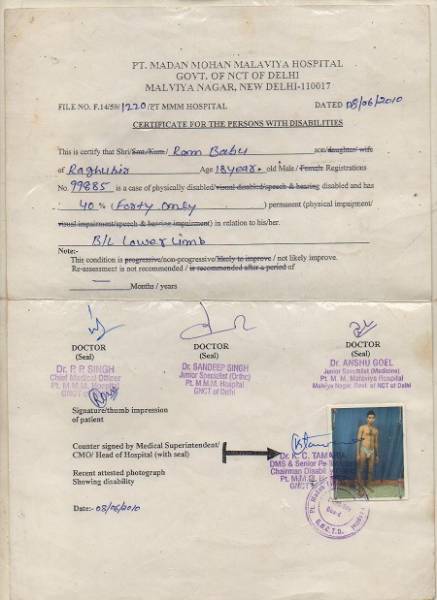 PT. MADAN MOHAN MALAVIYA HOSPITAL
GOVT. OF NCT OF DELHI
MALVIYA NAGAR, NEW DELHI-110017
FILE NO. F.14/59/1220/PT MMM HOSPITAL DATED 08/06/2010
CERTIFICATE FOR THE PERSONS WITH DISABILITIES
This is certify that Shri/Smt./Kum./ Ram Babu son/daughter/ wife
of Raghubir Age 18 year. old Male / Female Registrations
No. 99885 is a case of physically disabled/visual disabled/speech & hearing disabled and has
40 % (Forty only) permanent (physical impairment/
visual impairment/speech & hearing impairment) in relation to his/her.
B/L Lower Limb
Note:-
This condition is progressive/non-progressive/likely to improve / not likely improve.
Re-assessment is not recommended / is recommended after a period of
— Months / years
DOCTOR DOCTOR DOCTOR
(Seal) (Seal) (Seal)
Dr. P. P. SINGH
Chief Medical Officer
Pt. M. M. Hospital
GNCT of Delhi
Dr. SANDEEP SINGH
Junior Specialist (Ortho)
Pt. M.M.M. Hospital
GNCT of Delhi
Dr. ANSHU GOEL
Junior Specialist (Medicine)
Pt. M. M. Malaviya Hospital
Malviya Nagar, Govt. of NCT of Delhi
Signature/thumb impression
of patient
Counter signed by Medical Superintendent/
CMO/ Head of Hospital (with seal)
Dr. K. C. TAMARIA
DMS & Senior
Chairman
Pt. M.M.
GNCT
Recent attested photograph
Showing disability
Date:- 08/06/2010